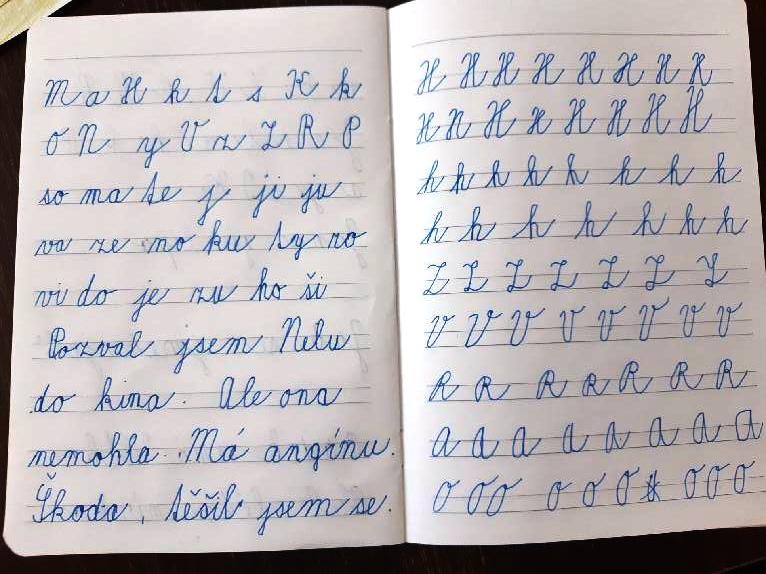 M a H h t s K k
O N y V z Z R P
so ma te j ji ju
va ze mo ku ty ro
vi do je zu ho ši
Pozval jsem Nelu
do kina. Ale ona
nemohla. Má angínu.
Škoda, těšil jsem se.
H H H H H H H H
H H H H H H H H
h h h h h h h h
h h h h h h h
Z Z Z Z Z Z Z
V V V V V V V V
R R R R R R R
a a a a a a a a
O O O O O O O O O